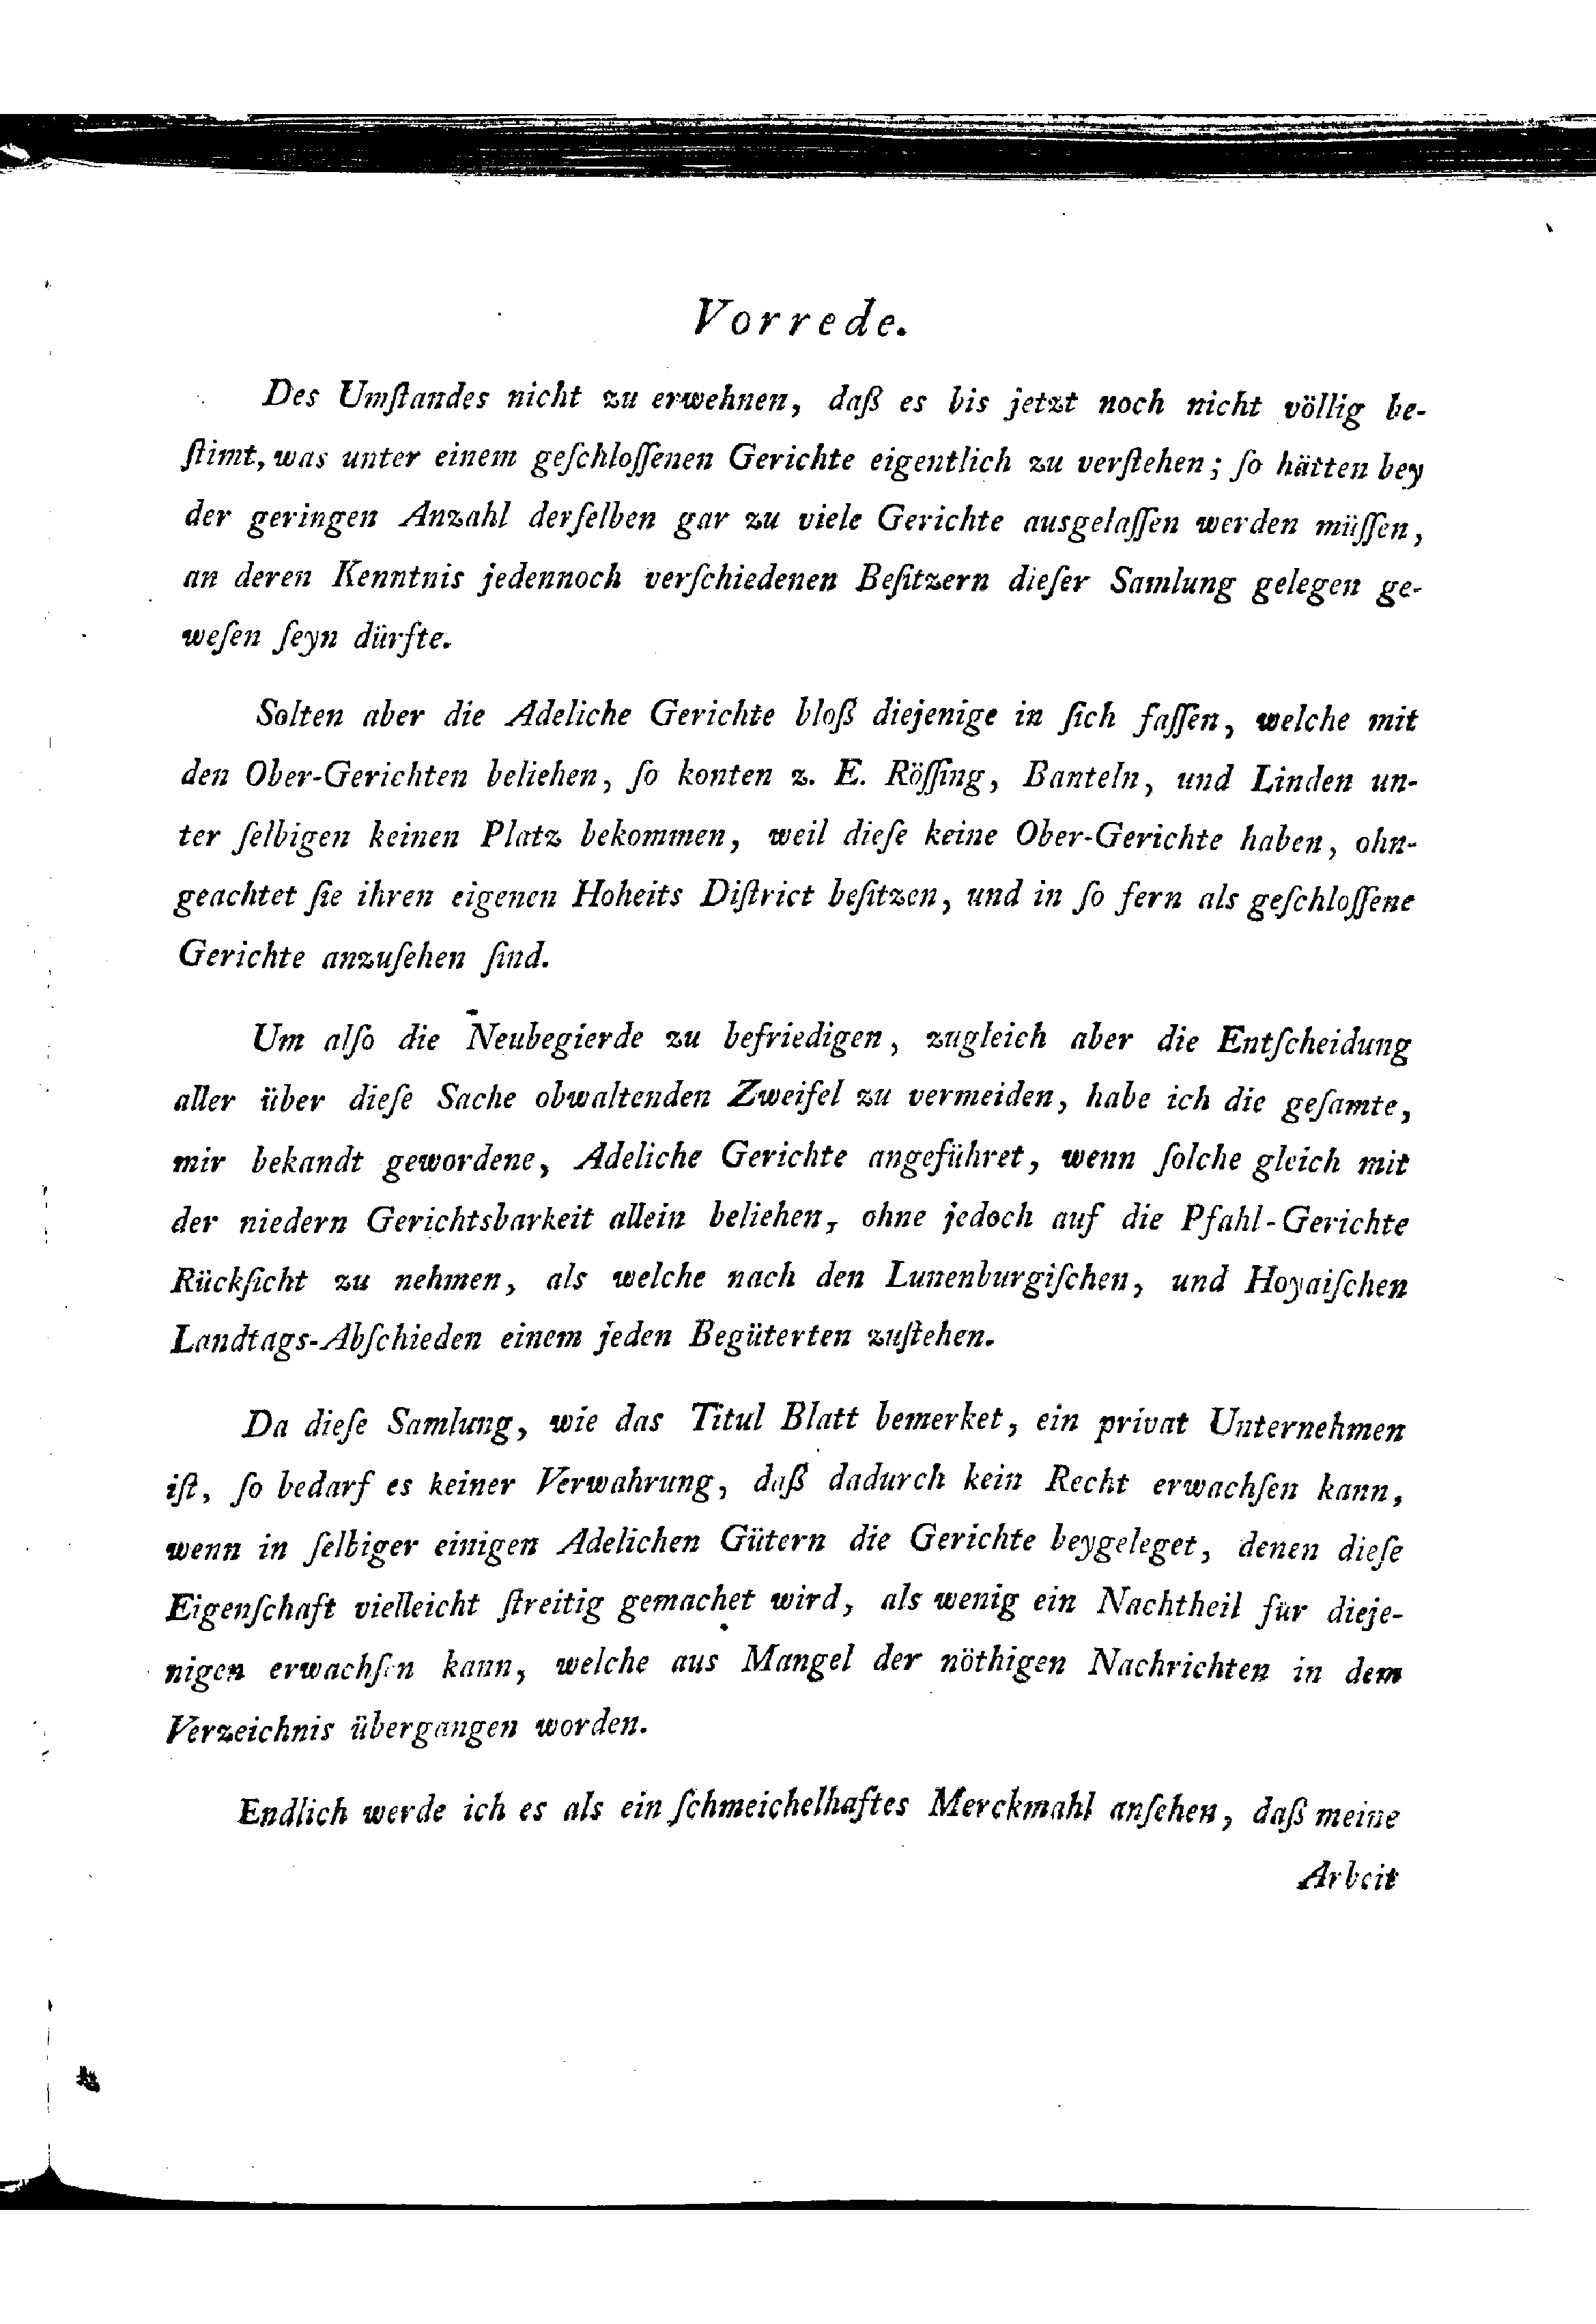 Vorrede.
Des Umſtandes nicht zu erwehnen, daß es bis jetzt noch nicht völlig be-
ſtimt, was unter einem geſchloſſenen Gerichte eigentlich zu verſtehen; ſo hätten bey
der geringen Anzahl derſelben gar zu viele Gerichte ausgelaſſen werden müſſen,
an deren Kenntnis jedennoch verſchiedenen Beſitzern dieſer Samlung gelegen ge-
weſen ſeyn dürfte.
Solten aber die Adeliche Gerichte bloß diejenige in ſich faſſen, welche mit
den Ober-Gerichten beliehen, ſo konten z. E. Röſſing, Banteln, und Linden un-
ter ſelbigen keinen Platz bekommen, weil dieſe keine Ober-Gerichte haben, ohn-
geachtet ſie ihren eigenen Hoheits Diſtrict beſitzen, und in ſo fern als geſchloſſene
Gerichte anzuſehen ſind.
Um alſo die Neubegierde zu befriedigen, zugleich aber die Entſcheidung
aller über dieſe Sache obwaltenden Zweifel zu vermeiden, habe ich die geſamte,
mir bekandt gewordene, Adeliche Gerichte angeführet, wenn ſolche gleich mit
der niedern Gerichtsbarkeit allein beliehen, ohne jedoch auf die Pfahl-Gerichte
Rückſicht zu nehmen, als welche nach den Lunenburgiſchen, und Hoyaiſchen
Landtags-Abſchieden einem jeden Begüterten zuſtehen.
Da dieſe Samlung, wie das Titul Blatt bemerket, ein privat Unternehmen
iſt, ſo bedarf es keiner Verwahrung, daß dadurch kein Recht erwachſen kann,
wenn in ſelbiger einigen Adelichen Gütern die Gerichte beygeleget, denen dieſe
Eigenſchaft vielleicht ſtreitig gemachet wird, als wenig ein Nachtheil für dieje-
nigen erwachſen kann, welche aus Mangel der nöthigen Nachrichten in dem
Verzeichnis übergangen worden.
Endlich werde ich es als ein ſchmeichelhaftes Merckmahl anſehen, daß meine
Arbeit